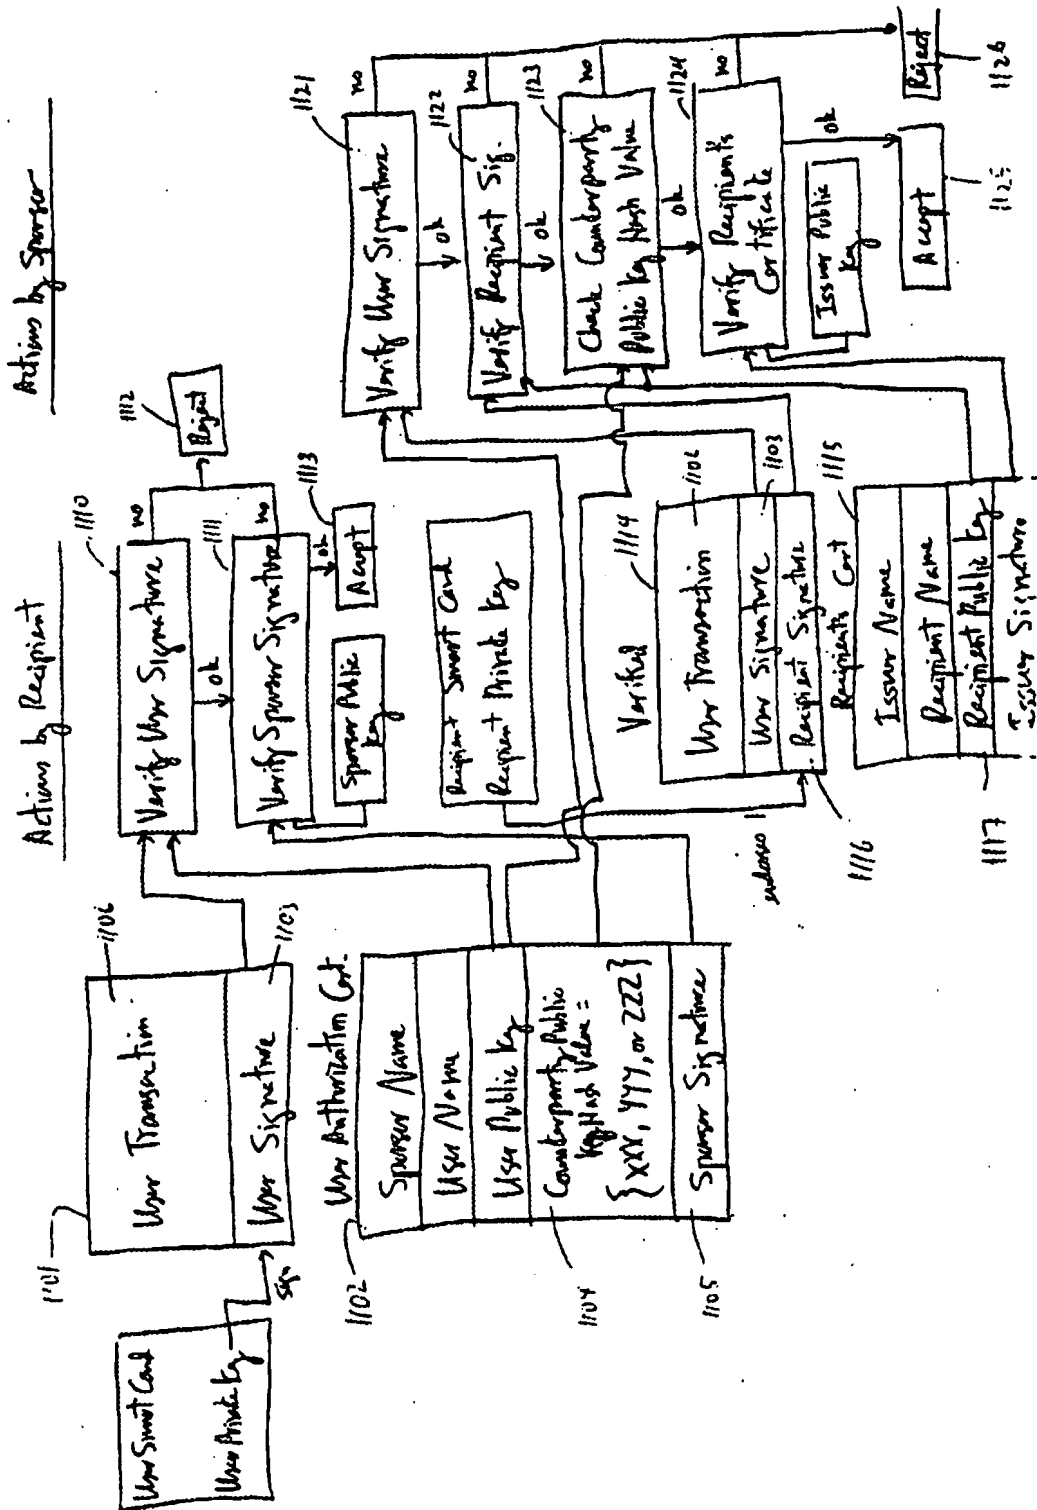 User Smart Card
User Private Key
sign
1101
User Transaction
1106
User Signature
1103
1102
User Authorization Cert.
Sponsor Name
User Name
User Public Key
Counterparty Public
Key Hash Value =
{XXX, YYY, or ZZZ}
1104
Sponsor Signature
1105
Actions by Recipient
1110
Verify User Signature
no
ok
1111
Verify Sponsor Signature
no
ok
1112
Reject
Sponsor Public
Key
Accept
1113
Recipient Smart Card
Recipient Private Key
Verified
1114
User Transaction
1106
User Signature
1103
Recipient Signature
1116
Recipients Cert
1115
Issuer Name
Recipient Name
Recipient Public Key
1117
Issuer Signature
Actions by Sponsor
1121
Verify User Signature
no
ok
1122
Verify Recipient Sig.
no
ok
1123
Check Counterparty
Public Key Hash Value
no
ok
1124
Verify Recipient's
Certificate
no
ok
Issuer Public
Key
Accept
1125
Reject
1126